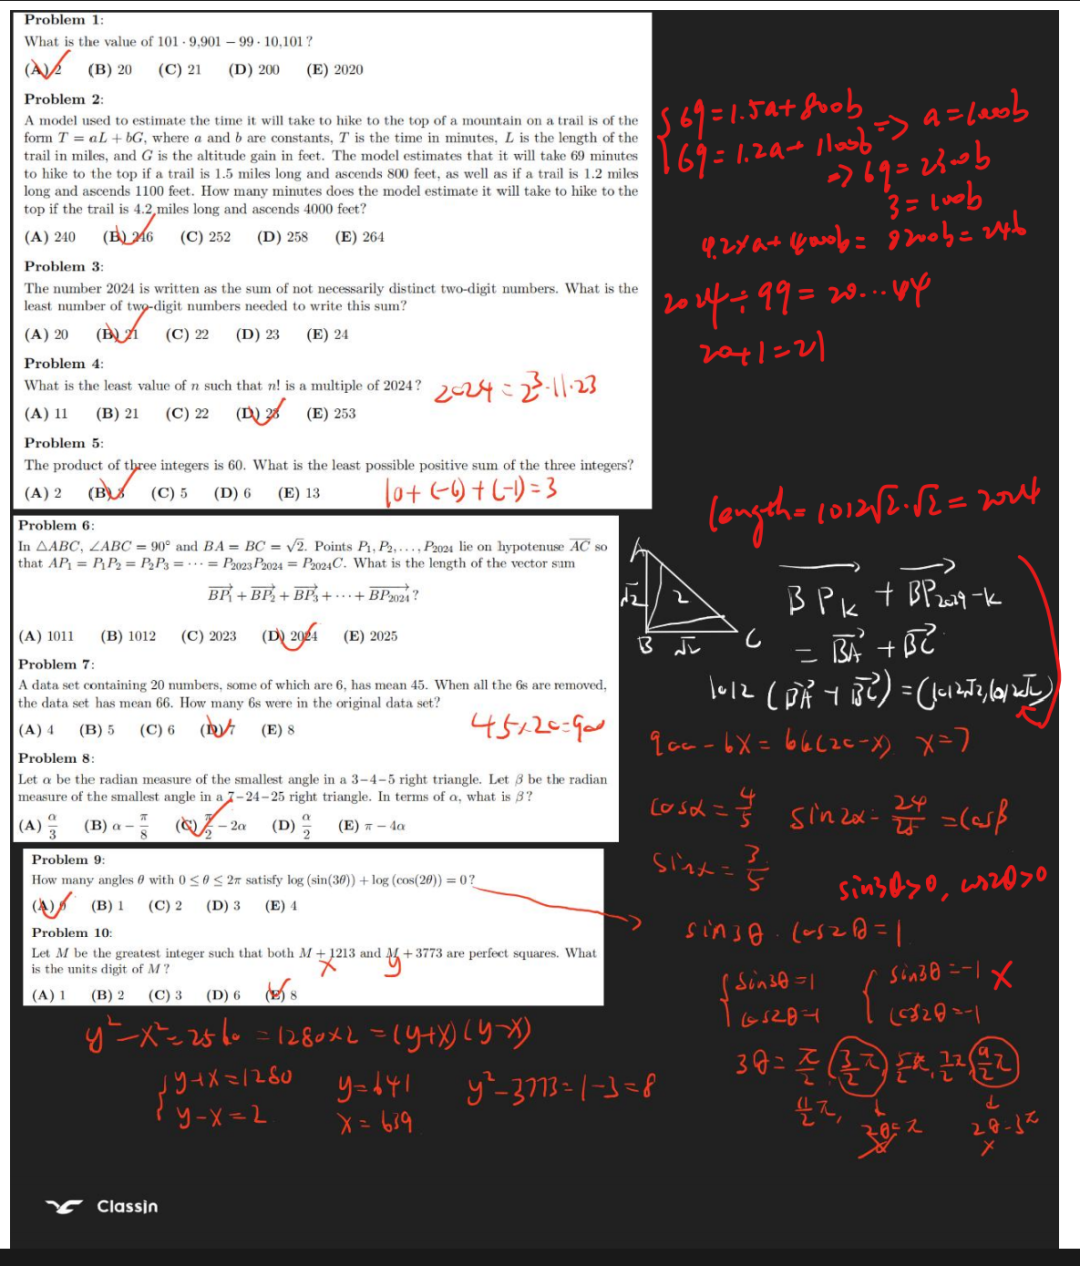 Problem 1:
What is the value of 101 · 9,901 − 99 · 10,101 ?
(A) 2 (B) 20 (C) 21 (D) 200 (E) 2020
Problem 2:
A model used to estimate the time it will take to hike to the top of a mountain on a trail is of the
form T = aL + bG, where a and b are constants, T is the time in minutes, L is the length of the
trail in miles, and G is the altitude gain in feet. The model estimates that it will take 69 minutes
to hike to the top if a trail is 1.5 miles long and ascends 800 feet, as well as if a trail is 1.2 miles
long and ascends 1100 feet. How many minutes does the model estimate it will take to hike to the
top if the trail is 4.2 miles long and ascends 4000 feet?
(A) 240 (B) 246 (C) 252 (D) 258 (E) 264
69=1.5a+800b
69=1.2a+1100b => a=1000b
=> 69=2300b
3=100b
4.2×a+4000b= 8200b=246
Problem 3:
The number 2024 is written as the sum of not necessarily distinct two-digit numbers. What is the
least number of two-digit numbers needed to write this sum?
(A) 20 (B) 21 (C) 22 (D) 23 (E) 24
2024÷99=20...44
20+1=21
Problem 4:
What is the least value of n such that n! is a multiple of 2024?
2024=2³·11·23
(A) 11 (B) 21 (C) 22 (D) 23 (E) 253
Problem 5:
The product of three integers is 60. What is the least possible positive sum of the three integers?
(A) 2 (B) 3 (C) 5 (D) 6 (E) 13
10+(-6)+(-1)=3
Problem 6:
In △ABC, ∠ABC = 90° and BA = BC = √2. Points P₁, P₂, . . . , P₂₀₂₄ lie on hypotenuse AC so
that AP₁ = P₁P₂ = P₂P₃ = · · · = P₂₀₂₃P₂₀₂₄ = P₂₀₂₄C. What is the length of the vector sum
BP₁ + BP₂ + BP₃ + · · · + BP₂₀₂₄ ?
(A) 1011 (B) 1012 (C) 2023 (D) 2024 (E) 2025
length=1012√2·√2=2024
A
√2
2
B
√2
C
BPK + BP2029-K
= BA + BC
1012 (BA + BC)=(1012√2,1012√2)
Problem 7:
A data set containing 20 numbers, some of which are 6, has mean 45. When all the 6s are removed,
the data set has mean 66. How many 6s were in the original data set?
(A) 4 (B) 5 (C) 6 (D) 7 (E) 8
45×20=900
900-6X=66(20-X) X=7
Problem 8:
Let α be the radian measure of the smallest angle in a 3−4−5 right triangle. Let β be the radian
measure of the smallest angle in a 7−24−25 right triangle. In terms of α, what is β?
(A) α/3 (B) α − π/8 (C) π/2 − 2α (D) α/2 (E) π − 4α
cosα=4/5 sin2α=24/25=cosβ
sinα=3/5
Problem 9:
How many angles θ with 0 ≤ θ ≤ 2π satisfy log (sin(3θ)) + log (cos(2θ)) = 0?
(A) 0 (B) 1 (C) 2 (D) 3 (E) 4
sin3θ>0, cos2θ>0
sin3θ·cos2θ=1
sin3θ=1
cos2θ=1
sin3θ=-1 X
cos2θ=-1
3θ=π/2, 3/2π, 5/2π, 7/2π, 9/2π
11/2π,
2θ=π
2θ=3π
X
Problem 10:
Let M be the greatest integer such that both M + 1213 and M + 3773 are perfect squares. What
is the units digit of M?
x y
(A) 1 (B) 2 (C) 3 (D) 6 (E) 8
y²-x²=2560=1280×2=(y+x)(y-x)
y+x=1280
y-x=2
y=641
x=639
y²-3773=1-3=8
ClassIn